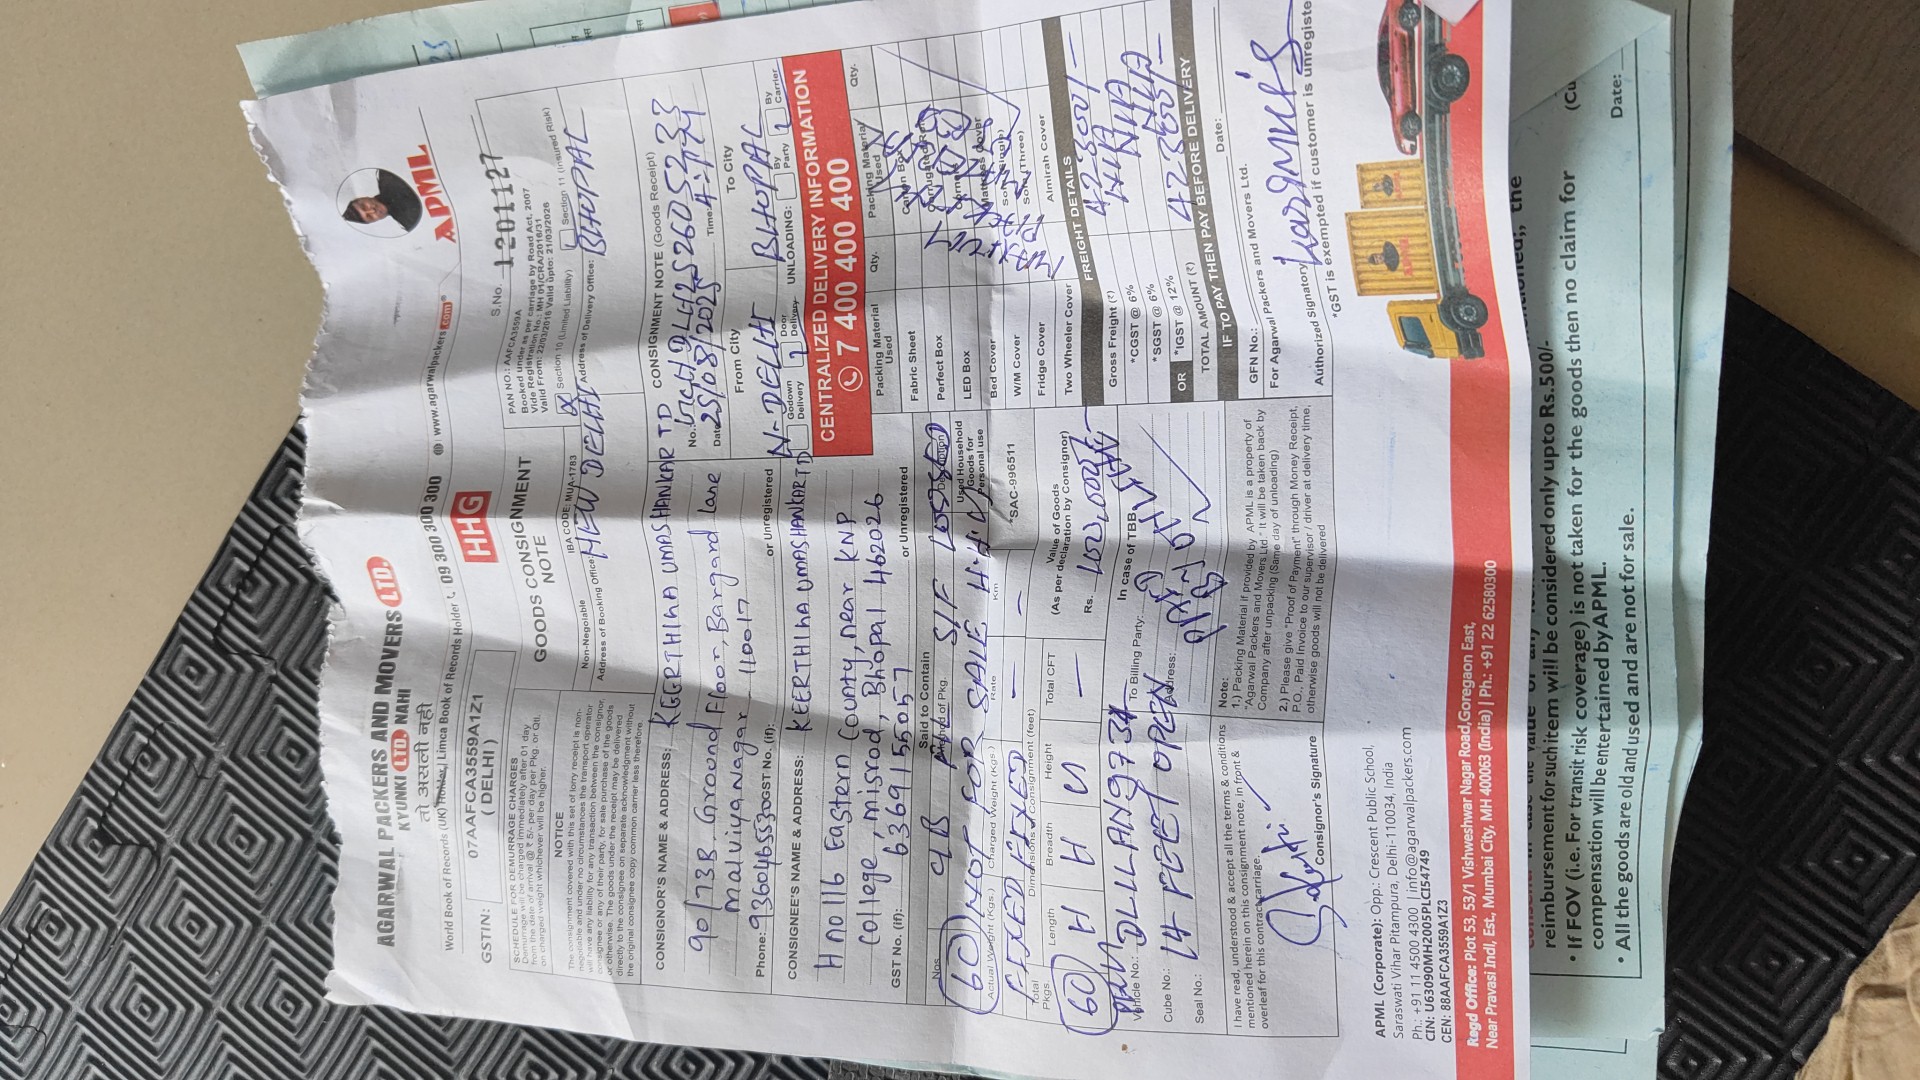 AGARWAL PACKERS AND MOVERS LTD.
KYUNKI LTD. NAHI
तो असली नहीं
World Book of Records (UK) Holder, Limca Book of Records Holder
09 300 300 300
www.agarwalpackers.com
APML
GSTIN: 07AAFCA3559A1Z1
( DELHI )
HHG
S.No. 1201127
SCHEDULE FOR DEMURRAGE CHARGES
Demurrage will be charged immediately after 01 day
from the date of arrival @ ₹ 5/- per day per Pkg. or Qtl.
on charged weight whichever will be higher.
GOODS CONSIGNMENT
NOTE
PAN NO.: AAFCA3559A
Booked under as per carriage by Road Act, 2007
Vide Registration No.: MH 01/CRA/2016/31
Valid From: 22/03/2016 Valid upto: 21/03/2026
NOTICE
The consignment covered with this set of lorry receipt is non-
negotiable and under no circumstances the transport operator
will have any liability for any transaction between the consignor,
consignee or any of their party, for sale purchase of the goods
or otherwise. The goods under the receipt may be delivered
directly to the consignee on separate acknowledgment without
the original consignee copy common carrier less therefore.
Non-Negoiable
IBA CODE: MUA-1783
Section 10 (Limited Liability)
Section 11 (Insured Risk)
Address of Booking Office: NEW DELHI
Address of Delivery Office: BHOPAL
CONSIGNOR'S NAME & ADDRESS: KEERTHIKA UMASHANKAR TD
90/73B. Ground Floor, Bargard Lane
Malviya Nagar - 110017
Phone: GST No. (If): or Unregistered
CONSIGNMENT NOTE (Goods Receipt)
No.:
Date: 25/08/2025 Time:
From City To City
N-DELHI BHOPAL
Godown Delivery Door Delivery UNLOADING: By Party By Carrier
CONSIGNEE'S NAME & ADDRESS: KEERTHIKA UMASHANKAR TD
H no 116 Eastern County, near KNP
College, misrod, Bhopal 462026
GST No. (If): 6369155057 or Unregistered
CENTRALIZED DELIVERY INFORMATION
7 400 400 400
Nos. Said to Contain
Method of Pkg. Description
60 NOT FOR SALE
Used Household
Goods for
Personal use
Actual Weight (Kgs.) Charged Weight (Kgs.) Rate Km
FIXED FIXED
*SAC-996511
Total Pkgs. Dimensions of Consignment (feet)
Length Breadth Height Total CFT
60
Value of Goods
(As per declaration by Consignor)
Rs.
Vehicle No.:
Cube No.: 14 FEET OPEN
Seal No.:
In case of TBB
To Billing Party:
Address:
Packing Material Used Qty. Packing Material Used Qty.
Fabric Sheet
Perfect Box
LED Box
Bed Cover
W/M Cover
Fridge Cover Almirah Cover
Two Wheeler Cover
FREIGHT DETAILS
Gross Freight (₹) 42350/-
*CGST @ 6%
*SGST @ 6%
OR *IGST @ 12%
TOTAL AMOUNT (₹) 42350/-
IF TO PAY THEN PAY BEFORE DELIVERY
GFN No.: Date:
For Agarwal Packers and Movers Ltd.
Authorized Signatory
*GST is exempted if customer is unregistere
I have read, understood & accept all the terms & conditions
mentioned herein on this consignment note, in front &
overleaf for this contract carriage.
Consignor's Signature
Note:
1.) Packing Material if provided by APML is a property of
"Agarwal Packers and Movers Ltd." It will be taken back by
Company after unpacking (Same day of unloading)
2.) Please give "Proof of Payment" through Money Receipt,
P.O., Paid Invoice to our supervisor / driver at delivery time,
otherwise goods will not be delivered
APML (Corporate): Opp.: Crescent Public School,
Saraswati Vihar Pitampura, Delhi-110034, India
Ph.: +91 11 4500 4300 | info@agarwalpackers.com
CIN: U63090MH2005PLC154749
CEN: 88AAFCA3559A1Z3
Regd Office: Plot 53, 53/1 Vishweshwar Nagar Road, Goregaon East,
Near Pravasi Indl, Est., Mumbai City, MH 400063 (India) | Ph.: +91 22 62580300
reimbursement for such item will be considered only upto Rs.500/-
• If FOV (i.e. For transit risk coverage) is not taken for the goods then no claim for
compensation will be entertained by APML.
• All the goods are old and used and are not for sale.
Date: